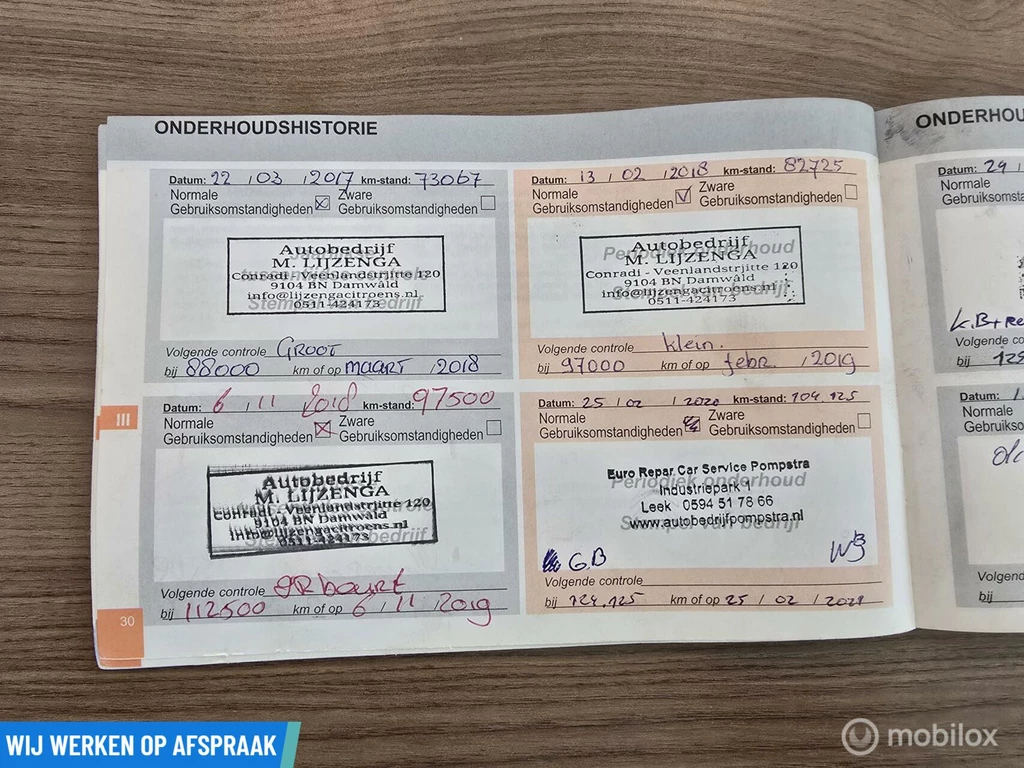 ONDERHOUDSHISTORIE
Datum: 22 / 03 / 2017 km-stand: 73067
Normale Gebruiksomstandigheden
Zware Gebruiksomstandigheden
Autobedrijf
M. LIJZENGA
Conradi - Veenlandstrjitte 120
9104 BN Damwâld
info@lijzengacitroens.nl
0511-424173
Stempel van bedrijf
Volgende controle GROOT
bij 88000 km of op maart / 2018
Datum: 13 / 02 / 2018 km-stand: 82725
Normale Gebruiksomstandigheden
Zware Gebruiksomstandigheden
Periodiek onderhoud
Autobedrijf
M. LIJZENGA
Conradi - Veenlandstrjitte 120
9104 BN Damwâld
info@lijzengacitroens.nl
0511-424173
Stempel van bedrijf
Volgende controle klein.
bij 97000 km of op febr. / 2019
III
Datum: 6 / 11 / 2018 km-stand: 97500
Normale Gebruiksomstandigheden
Zware Gebruiksomstandigheden
Autobedrijf
M. LIJZENGA
Conradi - Veenlandstrjitte 120
9104 BN Damwâld
info@lijzengacitroens.nl
0511-424173
Stempel van bedrijf
Volgende controle GR beurt
bij 112500 km of op 6 / 11 / 2019
Datum: 25 / 02 / 2020 km-stand: 104.125
Normale Gebruiksomstandigheden
Zware Gebruiksomstandigheden
Euro Repar Car Service Pompstra
Periodiek onderhoud
Industriepark 1
Leek 0594 51 78 66
Stempel van bedrijf
www.autobedrijfpompstra.nl
G.B
Volgende controle
bij 124.125 km of op 25 / 02 / 2021
30
ONDERHOU
Datum: 29 /
Normale
Gebruiksomsta
Volgende co
bij 129
Datum:
Normale
Gebruiksomsta
Volgend
bij
WIJ WERKEN OP AFSPRAAK
mobilox